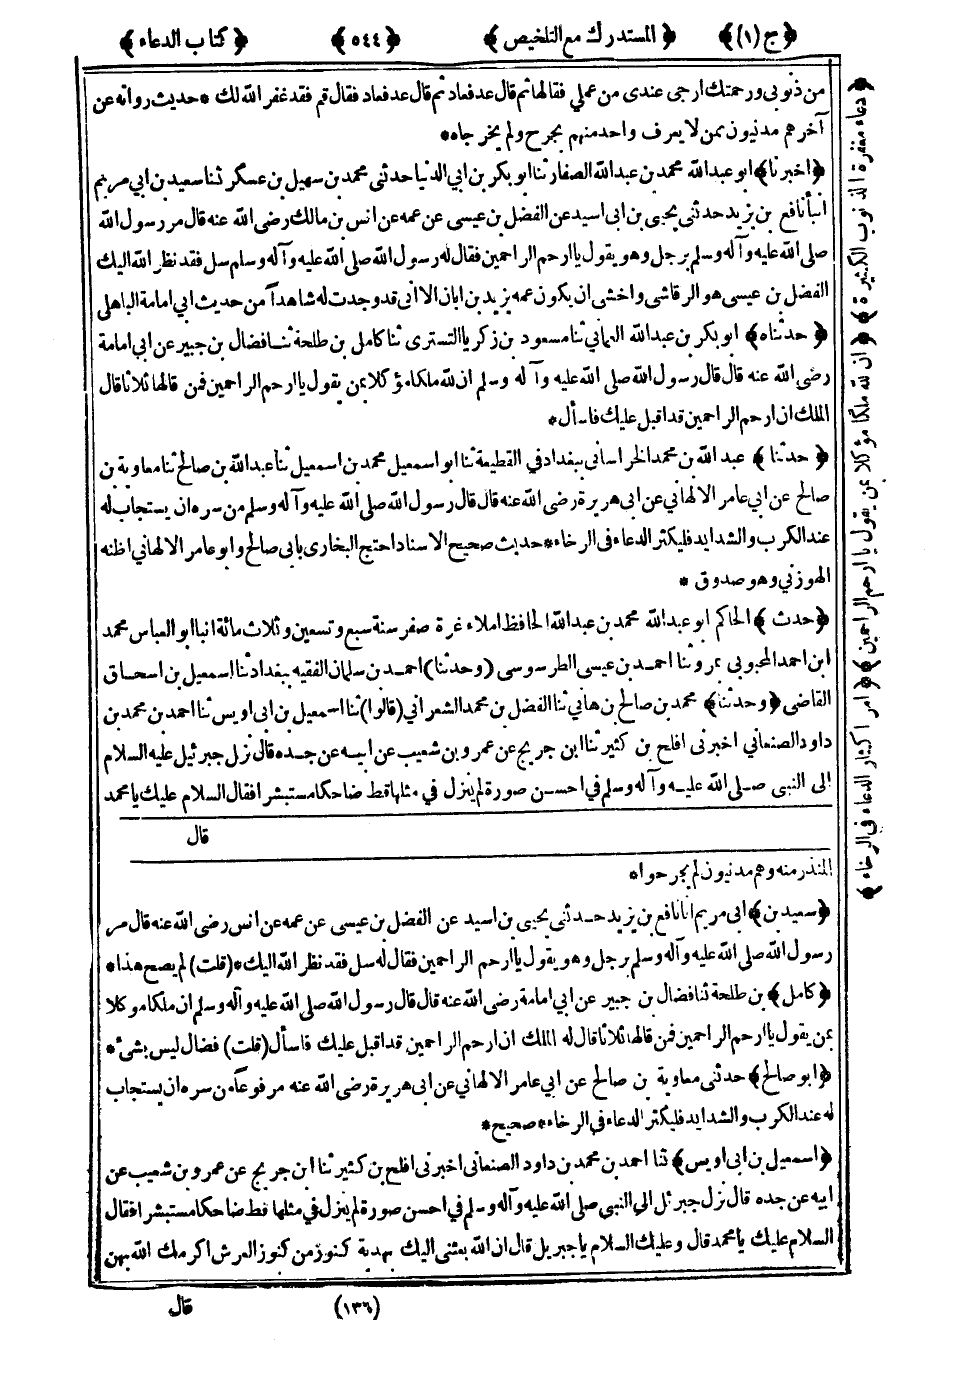 ﴿ج (١)﴾ ﴿المستدرك مع التلخيص﴾ ﴿٥٤٤﴾ ﴿كتاب الدعاء﴾
من ذنوبى ورحمتك ارجى عندى من عملي فقالها ثم قال عد فعاد ثم قال عد فعاد فقال قم فقد غفر الله لك * حديث رواته عن
آخرهم مدنيون ممن لا يعرف واحد منهم بجرح ولم يخرجاه*
﴿اخبرنا﴾ ابو عبدالله محمد بن عبدالله الصفار ثنا ابو بكر بن ابي الدنيا حدثنى محمد بن سهيل بن عسكر ثنا سعيد بن ابي مريم
انبأ نافع بن يزيد حدثنى يحيى بن ابى اسيد عن الفضل بن عيسى عن عمه عن انس بن مالك رضى الله عنه قال مر رسول الله
صلى الله عليه وآله وسلم برجل وهو يقول يا ارحم الراحمين فقال له رسول الله صلى الله عليه وآله وسلم سل فقد نظر الله اليك
الفضل بن عيسى هو الرقاشى واخشى ان يكون عمه يزيد بن ابان الا انى قد وجدت له شاهداً من حديث ابي امامة الباهلى
﴿حدثناه﴾ ابو بكر بن عبدالله ثنا مسعود بن زكريا التسترى ثنا كامل بن طلحة ثنا فضال بن جبير عن ابي امامة
رضى الله عنه قال قال رسول الله صلى الله عليه وآله وسلم ان لله ملكا مؤكلا بمن يقول يا ارحم الراحمين فمن قالها ثلاثا قال
الملك ان ارحم الراحمين قد اقبل عليك فاسأل*
﴿حدثنا﴾ عبد الله بن محمد الخراسانى ببغداد في القطيعة ثنا ابو اسمعيل محمد بن اسمعيل ثنا عبدالله بن صالح ثنا معاوية بن
صالح عن ابي عامر الالهانى عن ابى هريرة رضى الله عنه قال قال رسول الله صلى الله عليه وآله وسلم من سره ان يستجاب له
عند الكرب والشدايد فليكثر الدعاء فى الرخاء* حديث صحيح الاسناد احتج البخارى بابى صالح وابو عامر الالهانى اظنه
الهوزني وهو صدوق *
﴿حدث﴾ الحاكم ابو عبدالله محمد بن عبدالله الحافظ املاء غرة صفر سنة سبع وتسعين وثلاث مائة انبا ابو العباس محمد
ابن احمد المحبوبى بمرو ثنا احمد بن عيسى الطرسوسى (وحدثنا) احمد بن سلمان الفقيه ببغداد ثنا اسمعيل بن اسحاق
القاضى ﴿وحدثنا﴾ محمد بن صالح بن هاني ثنا الفضل بن محمد الشعرانى (قالوا) ثنا اسمعيل بن ابى اويس ثنا احمد بن محمد بن
داود الصنعانى اخبرنى افلح بن كثير ثنا ابن جريج عن عمرو بن شعيب عن ابيه عن جده قال نزل جبرئيل عليه السلام
الى النبى صلى الله عليه وآله وسلم في احسن صورة لم ينزل في مثلها قط ضاحكا مستبشرا فقال السلام عليك يا محمد
قال
المنذر منه وهم مدنيون لم يجرحوا*
﴿سعيد بن﴾ ابى مريم انا نافع بن يزيد حدثنى يحيى بن اسيد عن الفضل بن عيسى عن عمه عن انس رضى الله عنه قال مر
رسول الله صلى الله عليه وآله وسلم برجل وهو يقول يا ارحم الراحمين فقال له سل فقد نظر الله اليك* (قلت) لم يصح هذا*
﴿كامل﴾ بن طلحة ثنا فضال بن جبير عن ابي امامة رضى الله عنه قال قال رسول الله صلى الله عليه وآله وسلم ان ملكا موكلا
بمن يقول يا ارحم الراحمين فمن قالها ثلاثا قال له الملك ان ارحم الراحمين قد اقبل عليك فاسأل (قلت) فضال ليس بشئ *
﴿ابو صالح﴾ حدثنى معاوية بن صالح عن ابي عامر الالهانى عن ابى هريرة رضى الله عنه مرفوعاً من سره ان يستجاب
له عند الكرب والشدايد فليكثر الدعاء في الرخاء* صحيح*
﴿اسمعيل بن ابى اويس﴾ ثنا احمد بن محمد بن داود الصنعانى اخبرنى افلح بن كثير ثنا ابن جريج عن عمرو بن شعيب عن
ابيه عن جده قال نزل جبرئل الى النبى صلى الله عليه وآله وسلم في احسن صورة لم ينزل في مثلها قط ضاحكا مستبشرا فقال
السلام عليك يا محمد قال وعليك السلام يا جبريل قال ان الله بعثنى اليك بهدية كنوز من كنوز العرش اكرمك الله بهن
(١٣٦) قال
﴿دعاء مغفرة الذنوب الكثيرة﴾ ﴿ان لله ملكا مؤكلا بمن يقول يا ارحم الراحمين﴾ ﴿امر اكثار الدعاء في الرخاء﴾